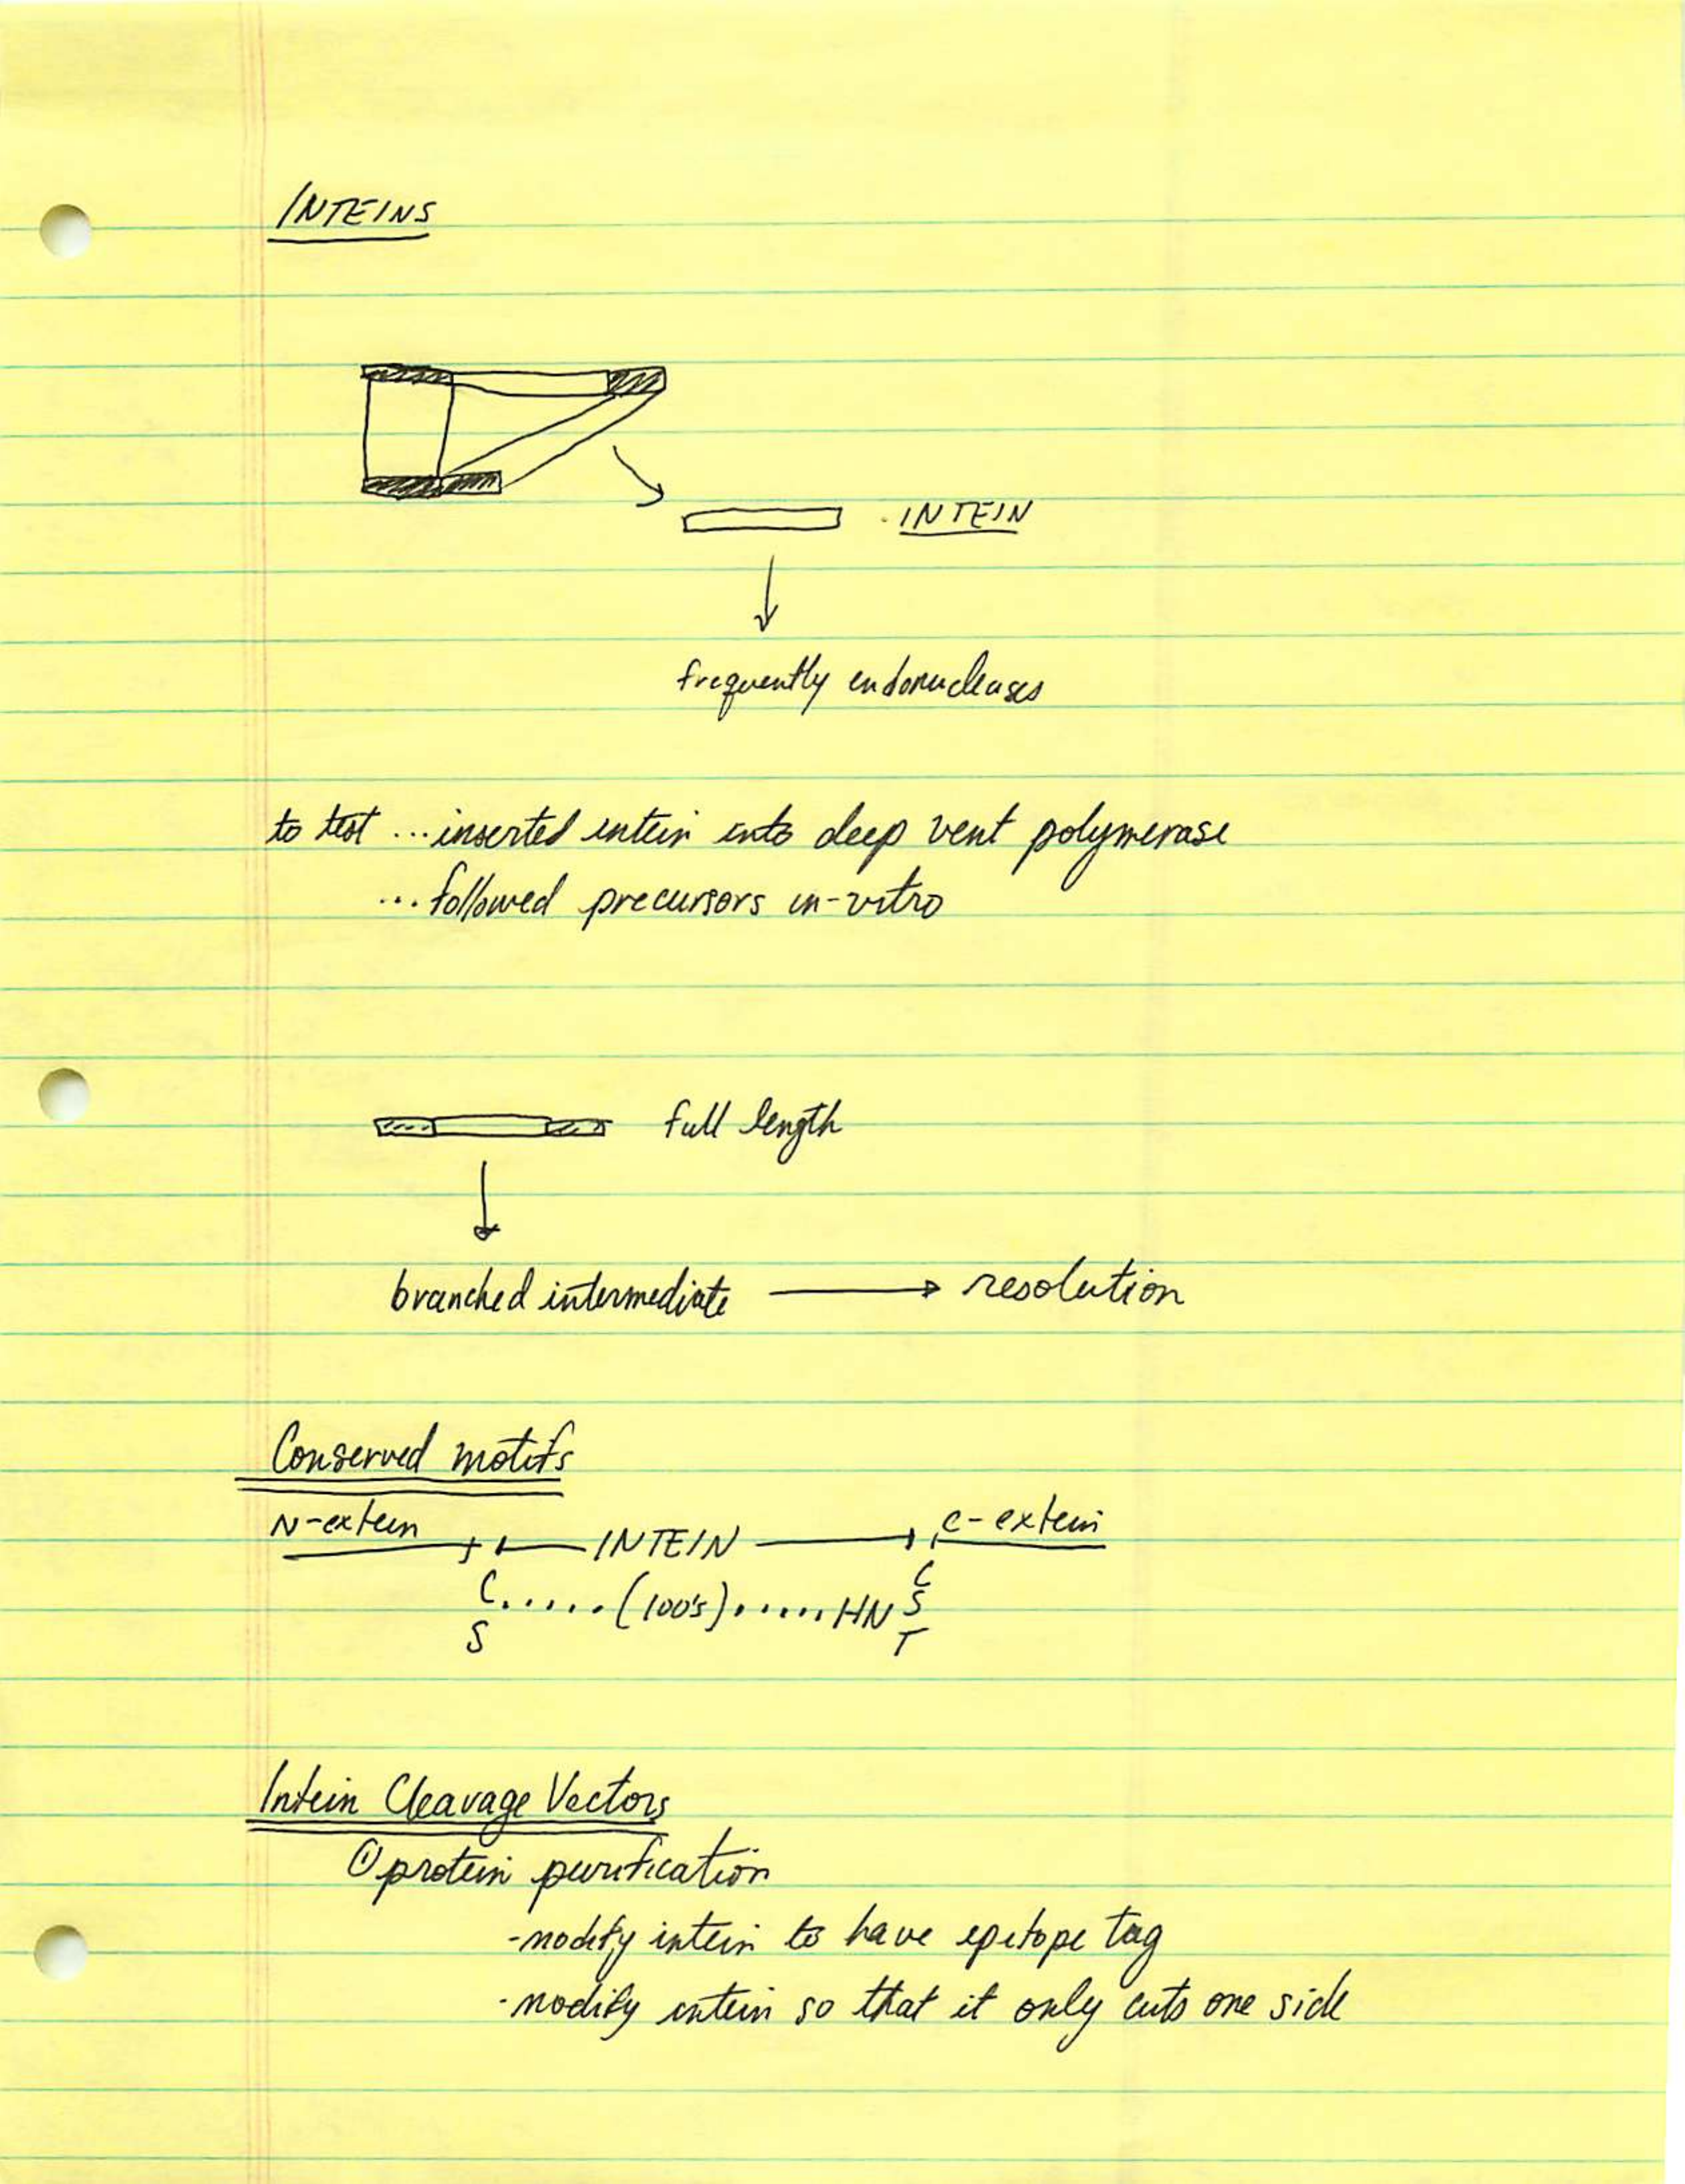 INTEINS
INTEIN
frequently endonucleases
to test ... inserted intein into deep vent polymerase
... followed precursors in-vitro
full length
branched intermediate → resolution
Conserved motifs
N-extein INTEIN C-extein
C ...... (100's) ...... HN C
S S
T
Intein Cleavage Vectors
① protein purification
- modify intein to have epitope tag
- modify intein so that it only cuts one side